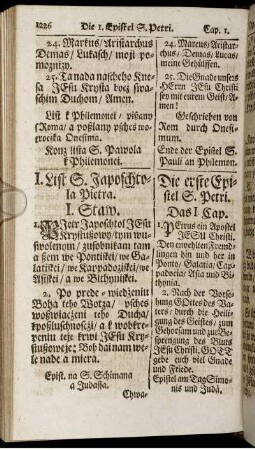 1226 Die 1. Epistel S. Petri. Cap. 1.
24. Markus/ Aristarchus
Demas/ Lukasch/ moji po-
moznizy.
25. Ta nada naschego Kne-
sa JEsu Krysta bocz swa-
schim Duchom/ Amen.
List k Philemonei/ pißany
s Roma/ a poßlany psches
Onesima.
Konz lista S. Pawola
k Philemonei.
I. List S. Japoschto-
la Pietra.
I. Staw.
1. PJetr Japoschtol JEsu
Krystußowy/ tym wu-
swolenym/ zusobnikam tam
a ßem we Pontiskei/ we Ga-
latiskei/ we Kappadoziskei/ we
Asiskei/ a we Bithyniskei.
2. Po prede-wiedzeniu
Boha teho Wotza/ psches
woßwiaczeni teho Ducha/
kpoßluschnosczi/ a k wobkro-
peniu teje krwi JEsu Kry-
stußoweje: Boh dai nam we-
le nade a miera.
Epist. na S. Schimana
a Judassa.
24. Marcus/ Aristar-
chus/ Demas/ Lucas/
meine Gehülffen.
25. Die Gnade unsers
HErrn JEsu Christi
sey mit eurem Geist/ A-
men!
Geschrieben von
Rom durch Onesi-
mum.
Ende der Epistel S.
Pauli an Philemon.
Die erste Epi-
stel S. Petri.
Das I. Cap.
1. PEtrus ein Apostel
JESU Christi,
Den erwehlten Fremd-
lingen hin und her in
Ponto/ Galatia/ Cap-
padocia/ Asia und Bi-
thynia.
2. Nach der Vorse-
hung GOttes des Va-
ters/ durch die Heili-
gung des Geistes/ zum
Gehorsam und zur Be-
sprengung des Bluts
JEsu Christi. GOTT
gebe euch viel Gnade
und Friede.
Epistel am Tag Simo-
nis und Judä.
Chwa-